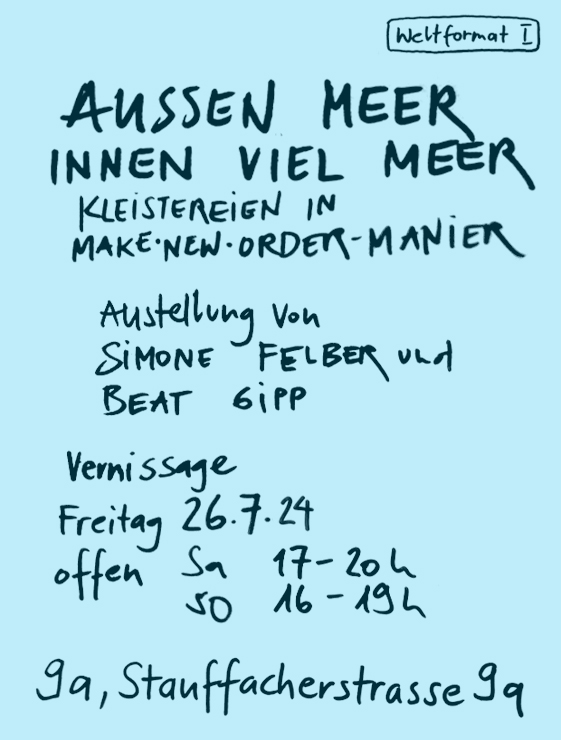 Weltformat I
AUSSEN MEER
INNEN VIEL MEER
KLEISTEREIEN IN
MAKE·NEW·ORDER-MANIER
Austellung von
SIMONE FELBER und
BEAT GIPP
Vernissage
Freitag 26.7.24
offen Sa 17-20h
SO 16-19h
9a, Stauffacherstrasse 9a